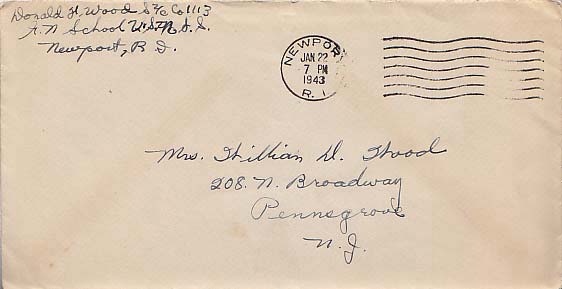 Donald H. Wood S 2/c Co 1113
A. N School U.S.N.T.S.
Newport, R I.
NEWPORT
JAN 22
7 PM
1943
R. I.
Mrs. William D. Wood
208. N. Broadway
Pennsgrove
N. J.